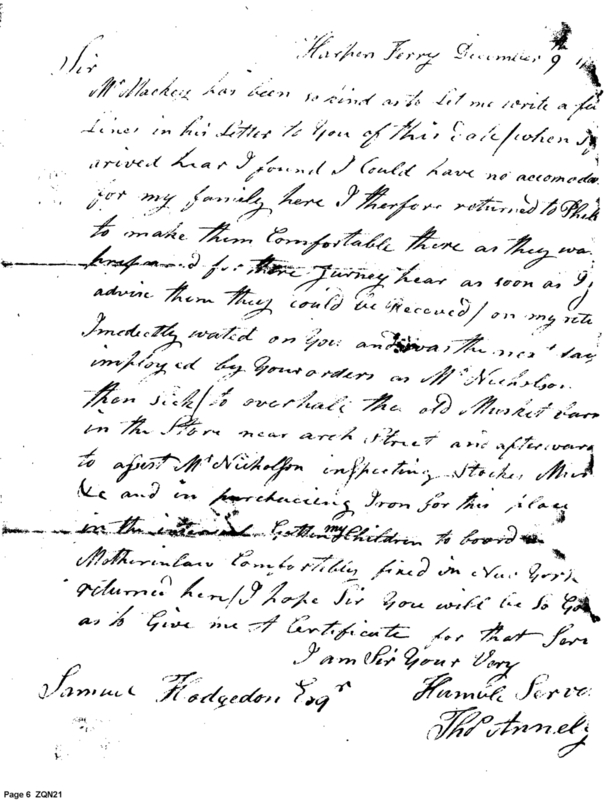 Harpers Ferry December 9th
Sir
Mr Mackey has been so kind as to Let me write a few
Lines in his Letter to You of this Date / when I
arived hear I found I Could have no accomoda
for my family here I therfore returned to Phil
to make them Comfortable there as they wa
for there Jurney hear as soon as I
advise them they could be Receved / on my retu
Imedectly wated on You and was the next day
imployed by Your orders as Mr Nicholson
then sick / to overhale the old Musket barr
in the Store near arch Street and afterward
to assist Mr Nicholson inspecting Stocks Mus
&c and in purchaceing Iron for this place
in the my Children to board
Motherinlaw Comfortibly fixed in New York
returned here / I hope Sir You will be So Go
as to Give me A Certificate for that Serv
I am Sir Your Very
Humble Serva
Samuel Hodgedon Esqr
Thos Annely
Page 6 ZQN21